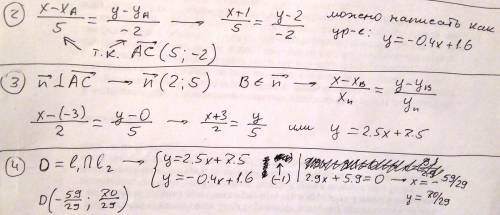 ② x-xA/5 = y-yA/-2 → x+1/5 = y-2/-2 можно написать как
т.к. AC (5; -2) ур-е: y=-0.4x+1.6
③ n⊥AC → n(2;5) B∈n → x-xB/xn = y-yB/yn
x-(-3)/2 = y-0/5 → x+3/2 = y/5 или y=2.5x+7.5
④ D=l₁∩l₂ → {y=2.5x+7.5
{y=-0.4x+1.6 (-1) | 2.9x+5.9=0 → x=-59/29
D(-59/29; 70/29) y=70/29